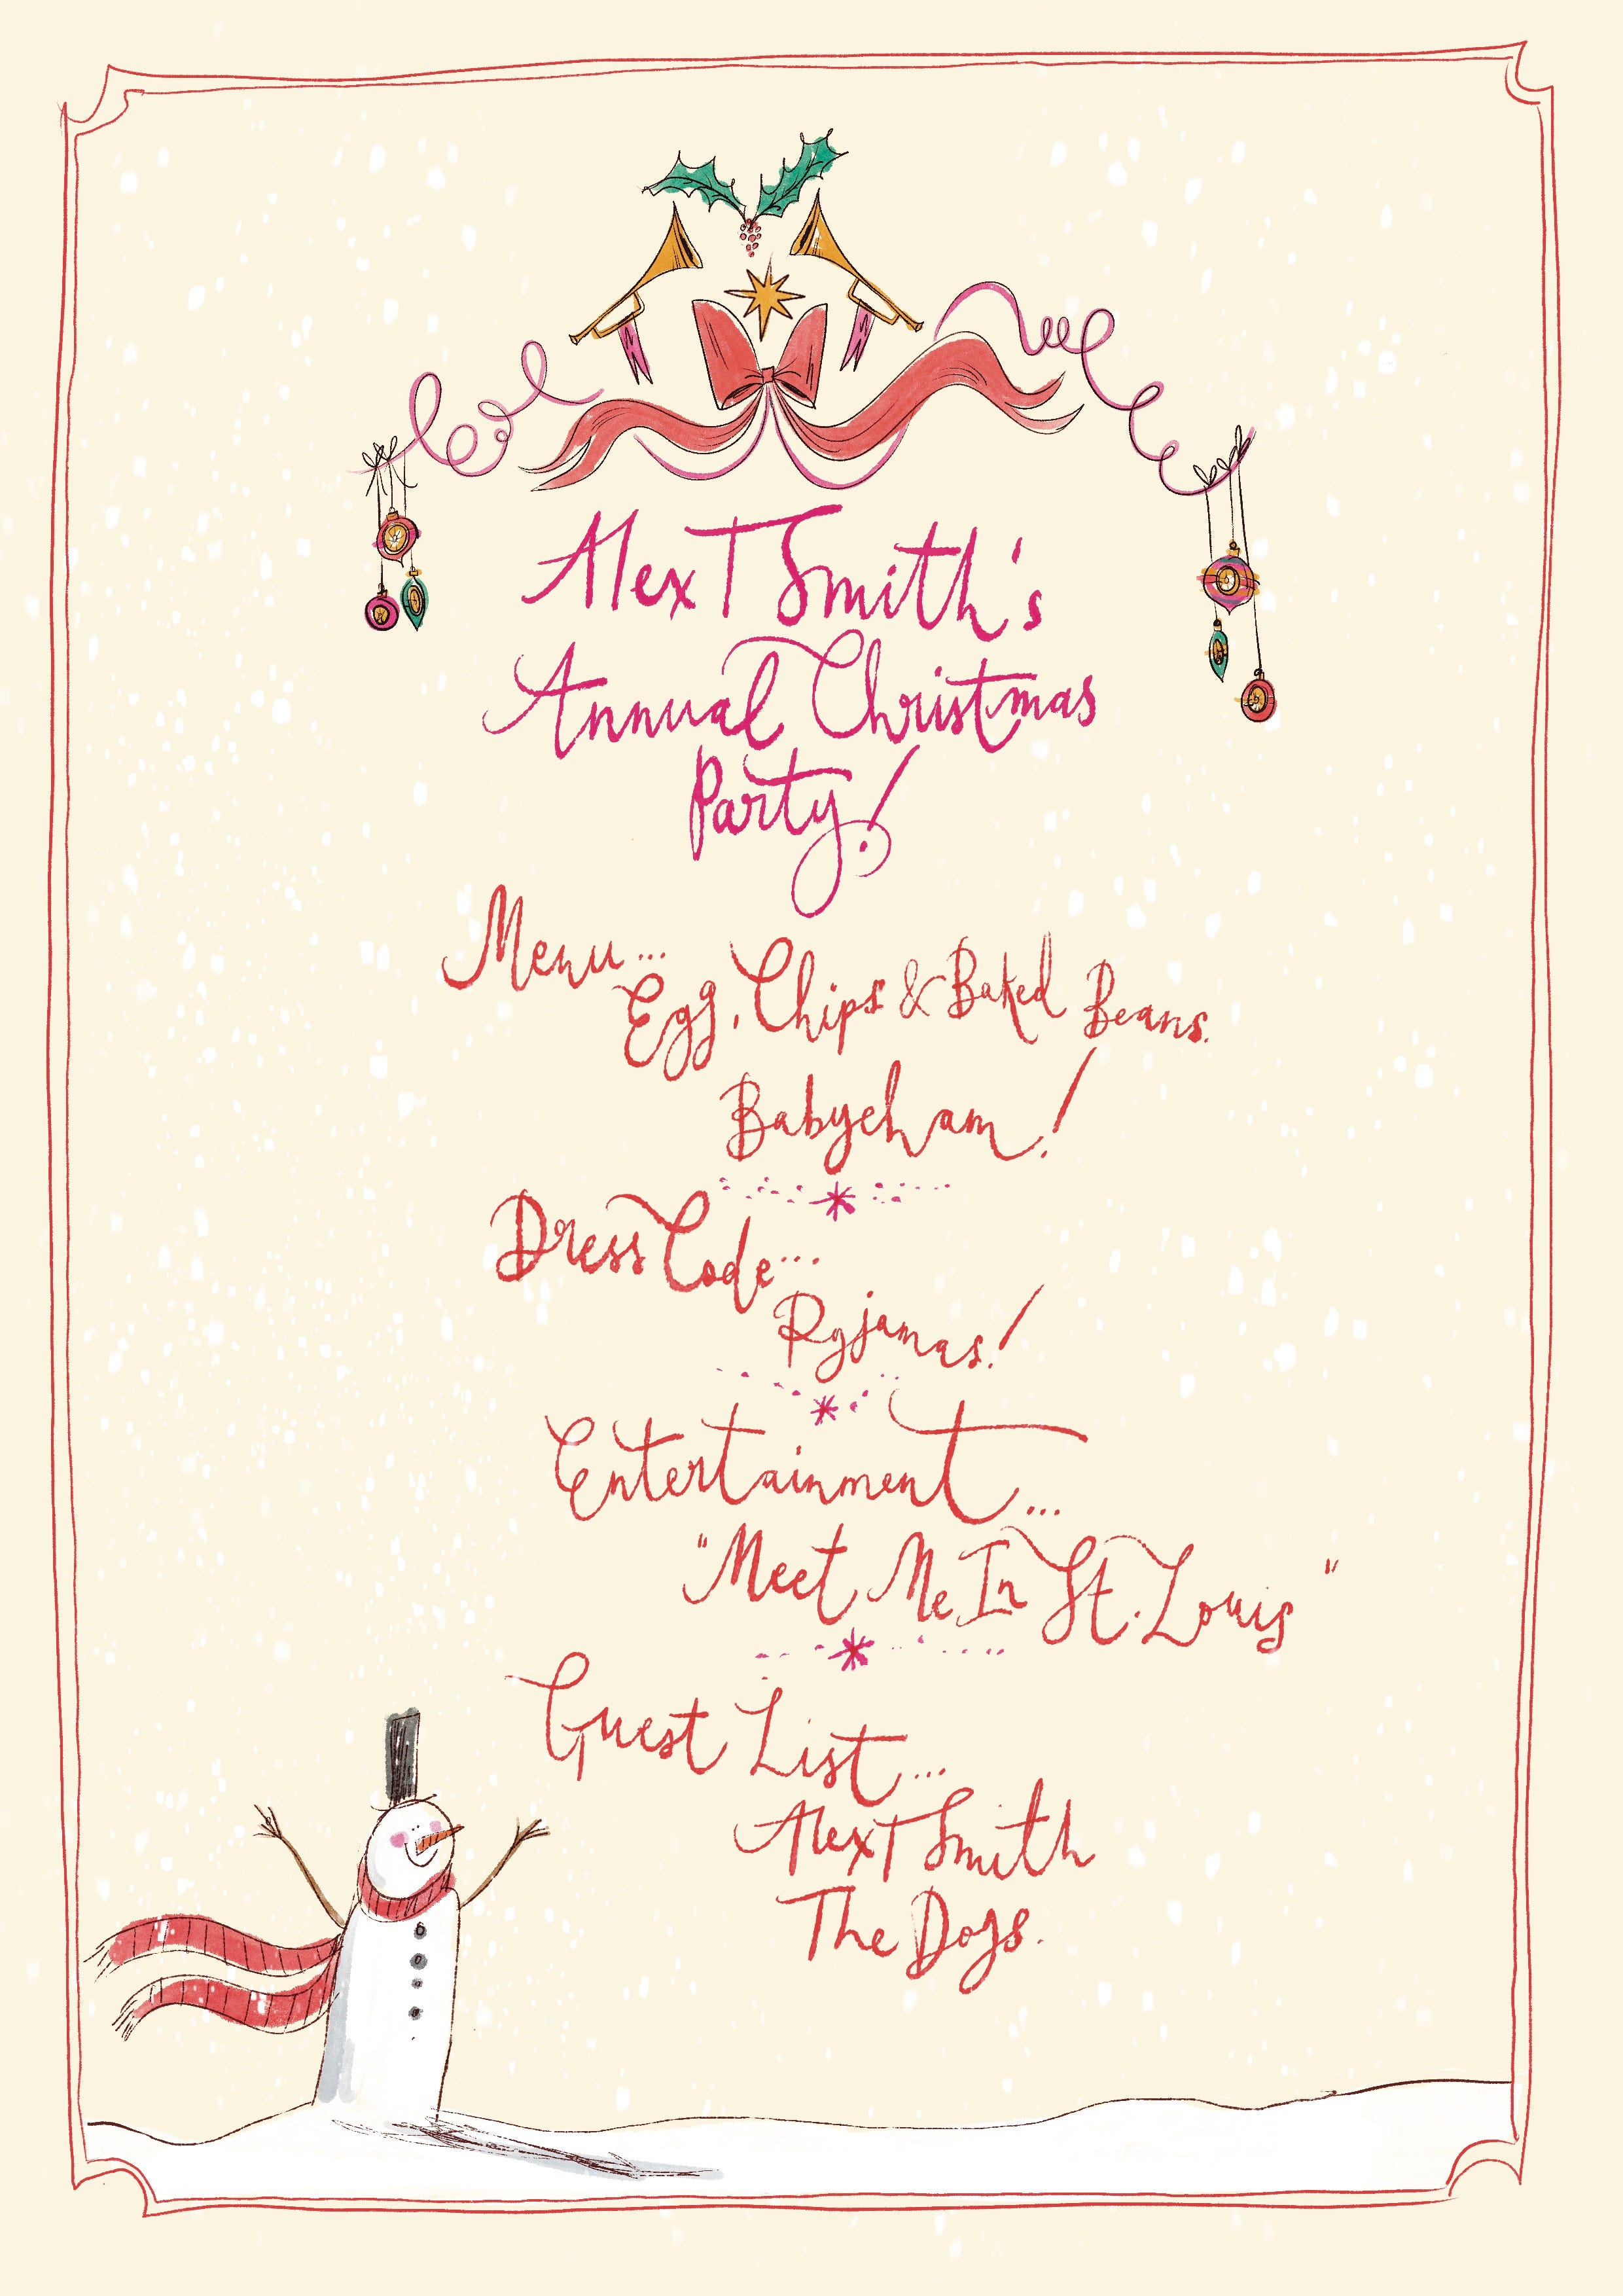 Alex T Smith's
Annual Christmas
Party!
Menu...
Egg, Chips & Baked Beans.
Babycham!
Dress Code...
Pyjamas!
Entertainment...
"Meet Me In St. Louis"
Guest List...
Alex T Smith
The Dogs.